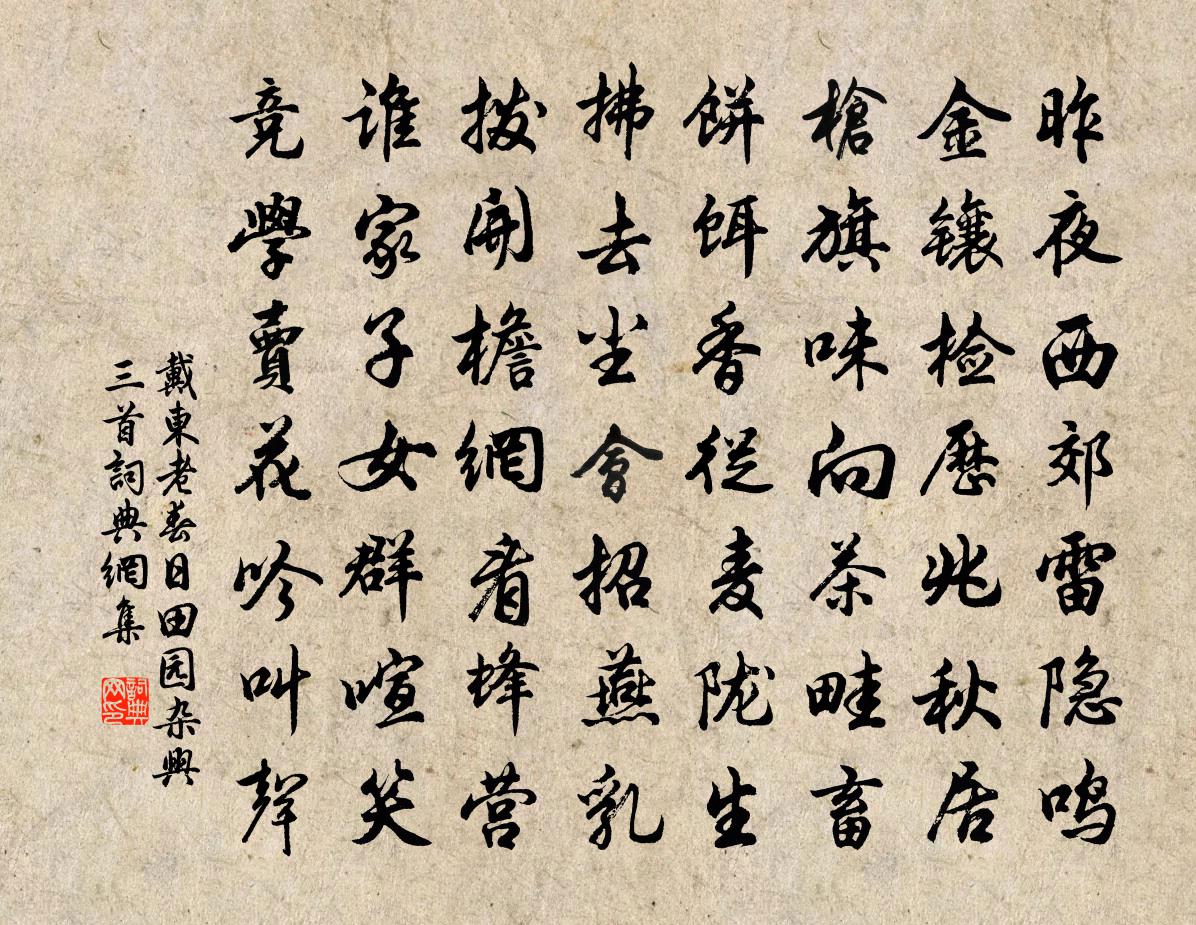 昨夜西郊雷隐鸣
金镶检历兆秋居
槍旗味向茶畦畜
餅餌香從麦陇生
拂去尘會招燕乳
拨開檐網看蜂营
谁家子女群喧笑
竞學賣花吟叫聲
戴東老春日田园杂興
三首詞典網集
詞典網印